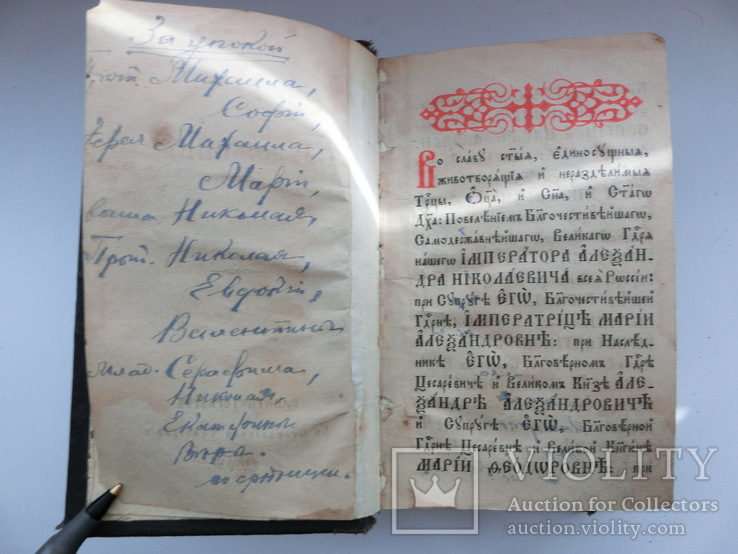 За упокой
Прот. Михаила,
Софіи,
Іерея Михаила,
Маріи,
воина Николая,
Прот. Николая,
Евдокіи,
Валентины
млад. Серафима,
Николая,
Екатерины
Веры.
Во славу ст҃ыя, єдиносꙋщныя,
животворящїѧ и нераздѣлимыя
Трⷪ҇цы, Ѻц҃а, и Сн҃а, и Ст҃агѡ
Дх҃а: Повелѣнїемъ Бл҃гочестивѣйшагѡ,
Самодержавнѣйшагѡ, Великагѡ Гдⷭ҇рѧ
нашегѡ ІМПЕРАТОРА АЛЕѮАН-
ДРА НІКОЛАЕВИЧА всеѧ Рѡссїи:
при Сꙋпрꙋгѣ ЕГѠ, Бл҃гочестивѣйшей
Гдⷭ҇рнѣ, ІМПЕРАТРІЦѢ МАРІИ
АЛЕѮАНДРОВНѢ: при Наслѣд-
никѣ ЕГѠ, Бл҃говѣрномъ Гдⷭ҇рѣ
Цесаревичѣ и Великомъ Кнѧзѣ АЛЕ-
ѮАНДРѢ АЛЕѮАНДРОВИЧѢ
и Сꙋпрꙋгѣ ЕГѠ, Бл҃говѣрной
Гдⷭ҇рнѣ Цесаревнѣ и Великой Кнѧгинѣ
МАРІИ ѲЕОДѠРОВНѢ: при
VIOLITY
Auction for Collectors
auction.violity.com